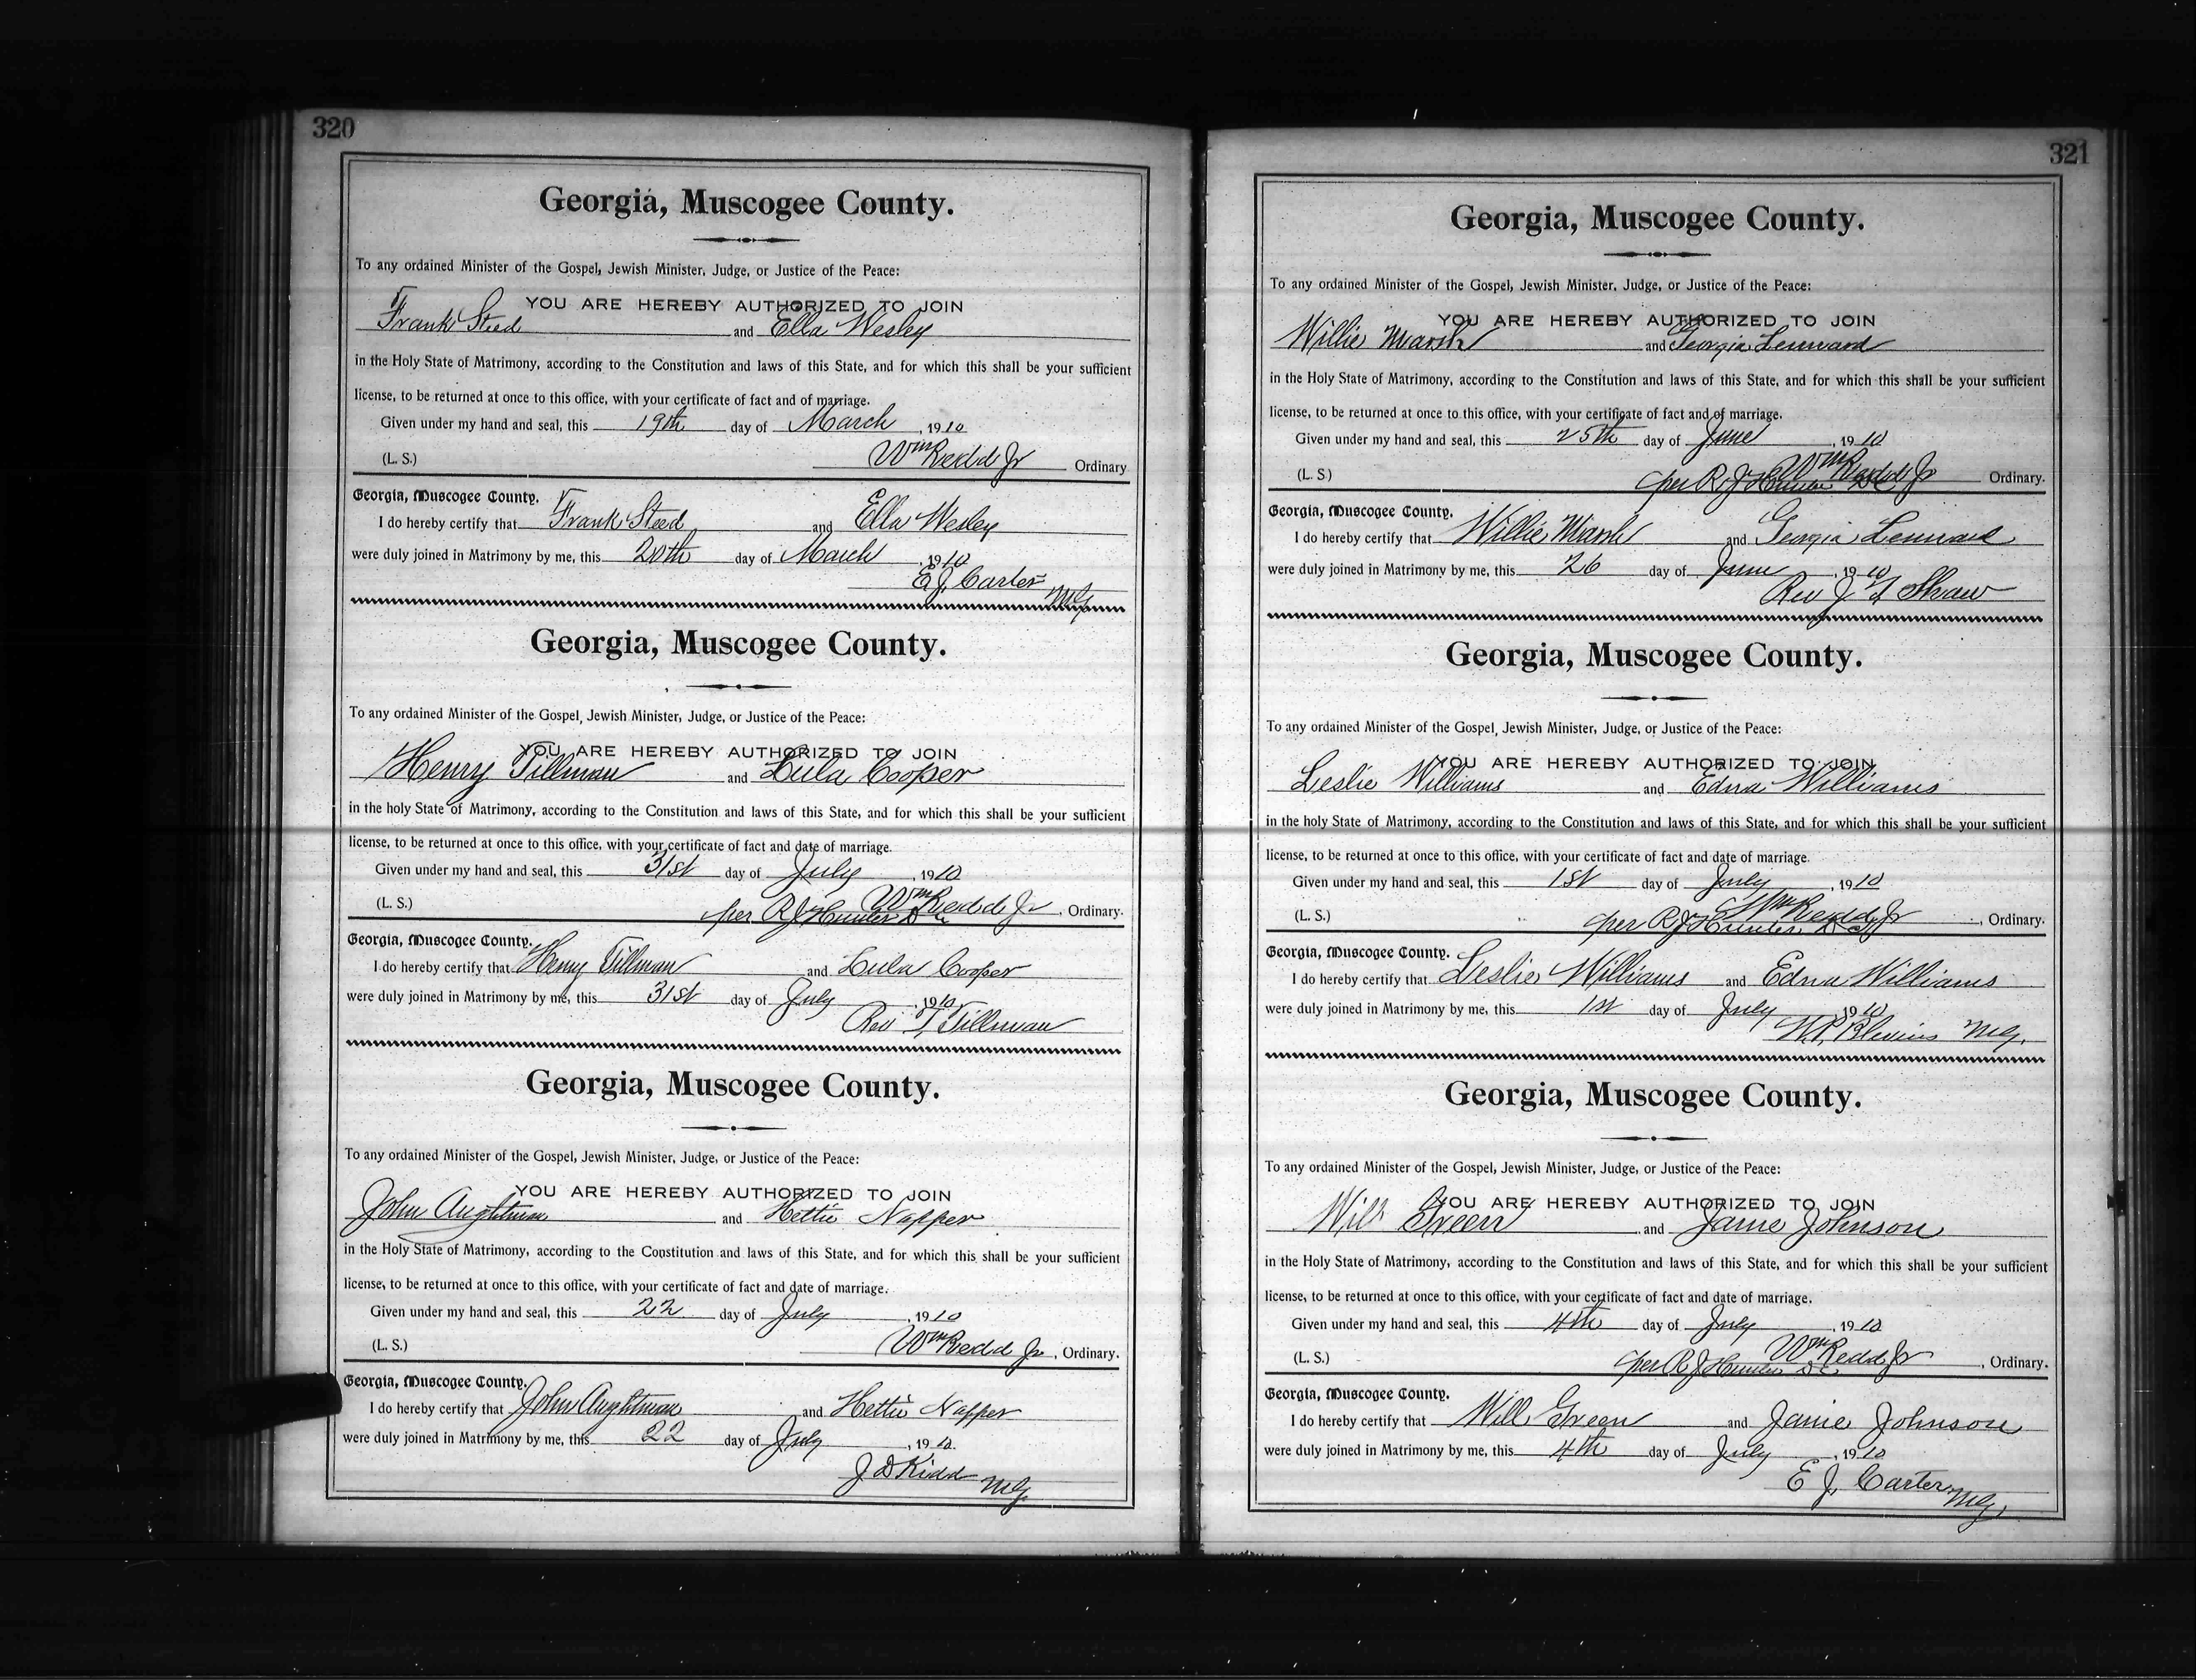 320
Georgia, Muscogee County.
To any ordained Minister of the Gospel, Jewish Minister, Judge, or Justice of the Peace:
YOU ARE HEREBY AUTHORIZED TO JOIN
Frank Steed and Ella Wesley
in the Holy State of Matrimony, according to the Constitution and laws of this State, and for which this shall be your sufficient
license, to be returned at once to this office, with your certificate of fact and of marriage.
Given under my hand and seal, this 19th day of March, 1910
(L. S.) Wm Redd Jr Ordinary
Georgia, Muscogee County.
I do hereby certify that Frank Steed and Ella Wesley
were duly joined in Matrimony by me, this 20th day of March, 1910
E. J. Carter MG
Georgia, Muscogee County.
To any ordained Minister of the Gospel, Jewish Minister, Judge, or Justice of the Peace:
YOU ARE HEREBY AUTHORIZED TO JOIN
Henry Tillman and Lula Cooper
in the holy State of Matrimony, according to the Constitution and laws of this State, and for which this shall be your sufficient
license, to be returned at once to this office, with your certificate of fact and date of marriage.
Given under my hand and seal, this 31st day of July, 1910
Wm Redd Jr
(L. S.) per R J Hunter D C, Ordinary.
Georgia, Muscogee County.
I do hereby certify that Henry Tillman and Lula Cooper
were duly joined in Matrimony by me, this 31st day of July, 1910
Rev T Tillman
Georgia, Muscogee County.
To any ordained Minister of the Gospel, Jewish Minister, Judge, or Justice of the Peace:
YOU ARE HEREBY AUTHORIZED TO JOIN
John Aughtman and Hettie Napper
in the Holy State of Matrimony, according to the Constitution and laws of this State, and for which this shall be your sufficient
license, to be returned at once to this office, with your certificate of fact and date of marriage.
Given under my hand and seal, this 22 day of July, 1910
(L. S.) Wm Redd Jr, Ordinary.
Georgia, Muscogee County.
I do hereby certify that John Aughtman and Hettie Napper
were duly joined in Matrimony by me, this 22 day of July, 1910.
J D Kidd MG
321
Georgia, Muscogee County.
To any ordained Minister of the Gospel, Jewish Minister, Judge, or Justice of the Peace:
YOU ARE HEREBY AUTHORIZED TO JOIN
Willie Marsh and Georgia Lennard
in the Holy State of Matrimony, according to the Constitution and laws of this State, and for which this shall be your sufficient
license, to be returned at once to this office, with your certificate of fact and of marriage.
Given under my hand and seal, this 25th day of June, 1910
Wm Redd Jr
(L. S.) per R. J Hunter D C Ordinary.
Georgia, Muscogee County.
I do hereby certify that Willie Marsh and Georgia Lennard
were duly joined in Matrimony by me, this 26 day of June, 1910
Rev J T Shaw
Georgia, Muscogee County.
To any ordained Minister of the Gospel, Jewish Minister, Judge, or Justice of the Peace:
YOU ARE HEREBY AUTHORIZED TO JOIN
Leslie Williams and Edna Williams
in the holy State of Matrimony, according to the Constitution and laws of this State, and for which this shall be your sufficient
license, to be returned at once to this office, with your certificate of fact and date of marriage.
Given under my hand and seal, this 1st day of July, 1910
Wm Redd Jr
(L. S.) per R J Hunter D C, Ordinary.
Georgia, Muscogee County.
I do hereby certify that Leslie Williams and Edna Williams
were duly joined in Matrimony by me, this 1st day of July, 1910
W. P. Blevins MG.
Georgia, Muscogee County.
To any ordained Minister of the Gospel, Jewish Minister, Judge, or Justice of the Peace:
YOU ARE HEREBY AUTHORIZED TO JOIN
Will Green and Janie Johnson
in the Holy State of Matrimony, according to the Constitution and laws of this State, and for which this shall be your sufficient
license, to be returned at once to this office, with your certificate of fact and date of marriage.
Given under my hand and seal, this 4th day of July, 1910
Wm Redd Jr
(L. S.) per R J Hunter D C, Ordinary.
Georgia, Muscogee County.
I do hereby certify that Will Green and Janie Johnson
were duly joined in Matrimony by me, this 4th day of July, 1910
E J. Carter MG,